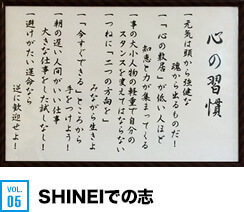 心の習慣
一元気は頭から強健な
魂から出るものだ!
一「心の敷居」が低い人ほど
知恵と力が集まってくる
一事の大小人物の軽重で自分の
スタンスを変えてはならない
一つねに「二つの方向を」
みながら生きよ
一「今すぐできる」ところから
手をつけよう!
一朝の遅い人間がいい仕事
大きな仕事をした試しなし!
一避けがたい運命なら
逆に歓迎せよ!
VOL.
05
SHINEIでの志